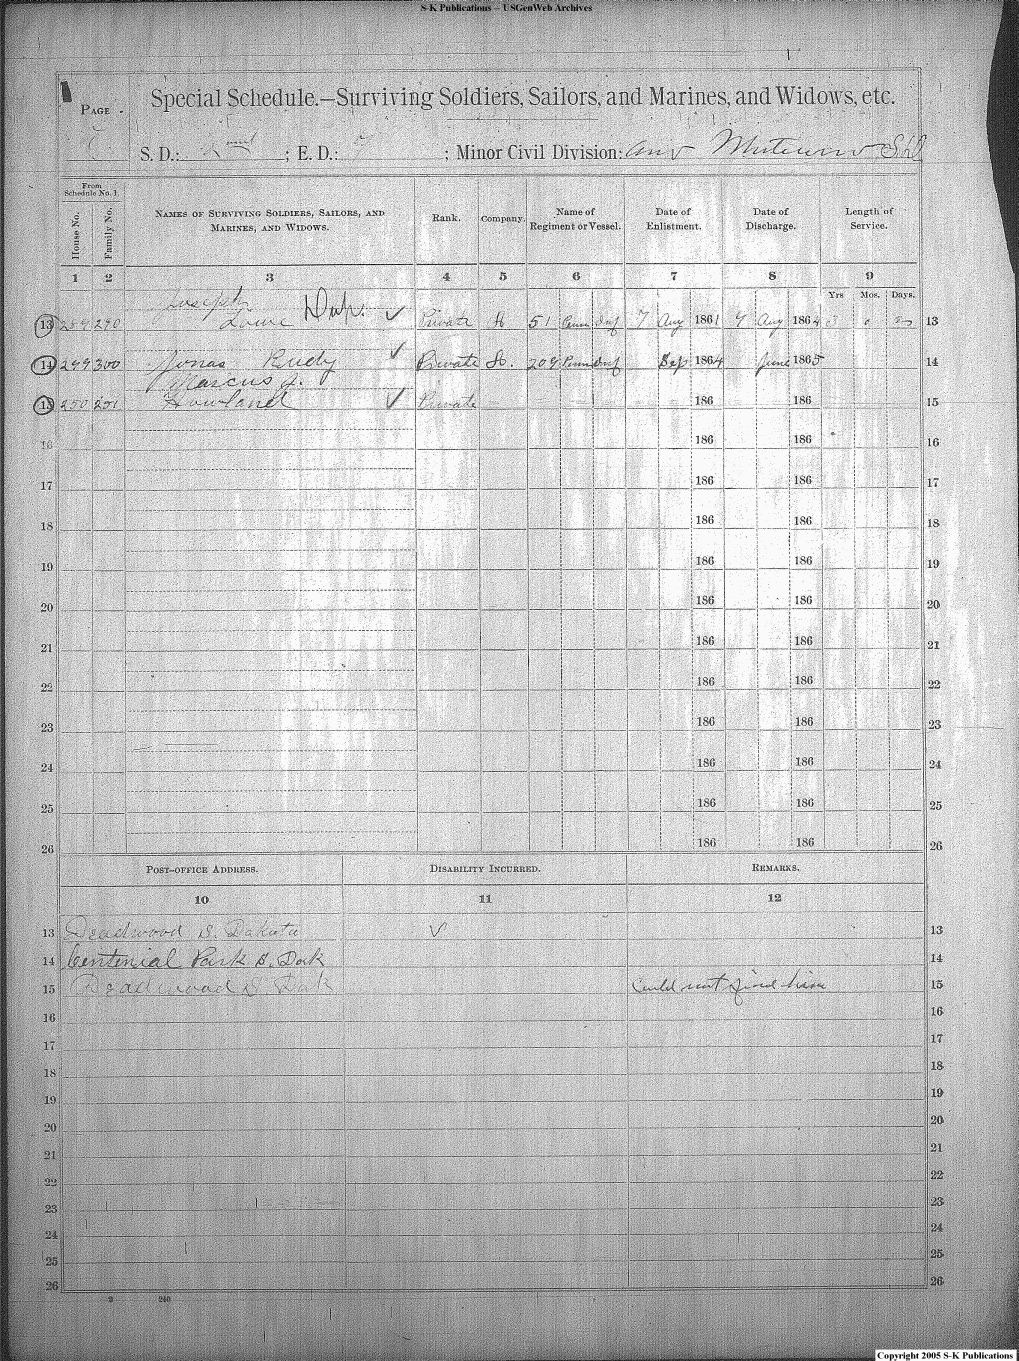 S-K Publications – USGenWeb Archives
Special Schedule.—Surviving Soldiers, Sailors, and Marines, and Widows, etc.
Page
S. D.: 2nd ; E. D.: 7 ; Minor Civil Division:
From Schedule No. 1.
House No. Family No. Names of Surviving Soldiers, Sailors, and Marines, and Widows. Rank. Company. Name of Regiment or Vessel. Date of Enlistment. Date of Discharge. Length of Service.
1 2 3 4 5 6 7 8 9
Yrs Mos. Days.
Joseph Dup.
13 289 290 Lowe Private H 51 Penn Inf 7 Aug 1861 9 Aug 1864 3 0 2 13
14 299 300 Jonas Rudy Private 209 Penn Inf Sep 1864 June 1865 14
Marcus J.
15 250 251 Howland Private 186 186 15
16 186 186 16
17 186 186 17
18 186 186 18
19 186 186 19
20 186 186 20
21 186 186 21
22 186 186 22
23 186 186 23
24 186 186 24
25 186 186 25
26 186 186 26
Post-office Address. Disability Incurred. Remarks.
10 11 12
13 Deadwood S. Dakota 13
14 Centenial Park S. Dak 14
15 Deadwood S Dak Could not find him 15
16 16
17 17
18 18
19 19
20 20
21 21
22 22
23 23
24 24
25 25
26 26
Copyright 2005 S-K Publications